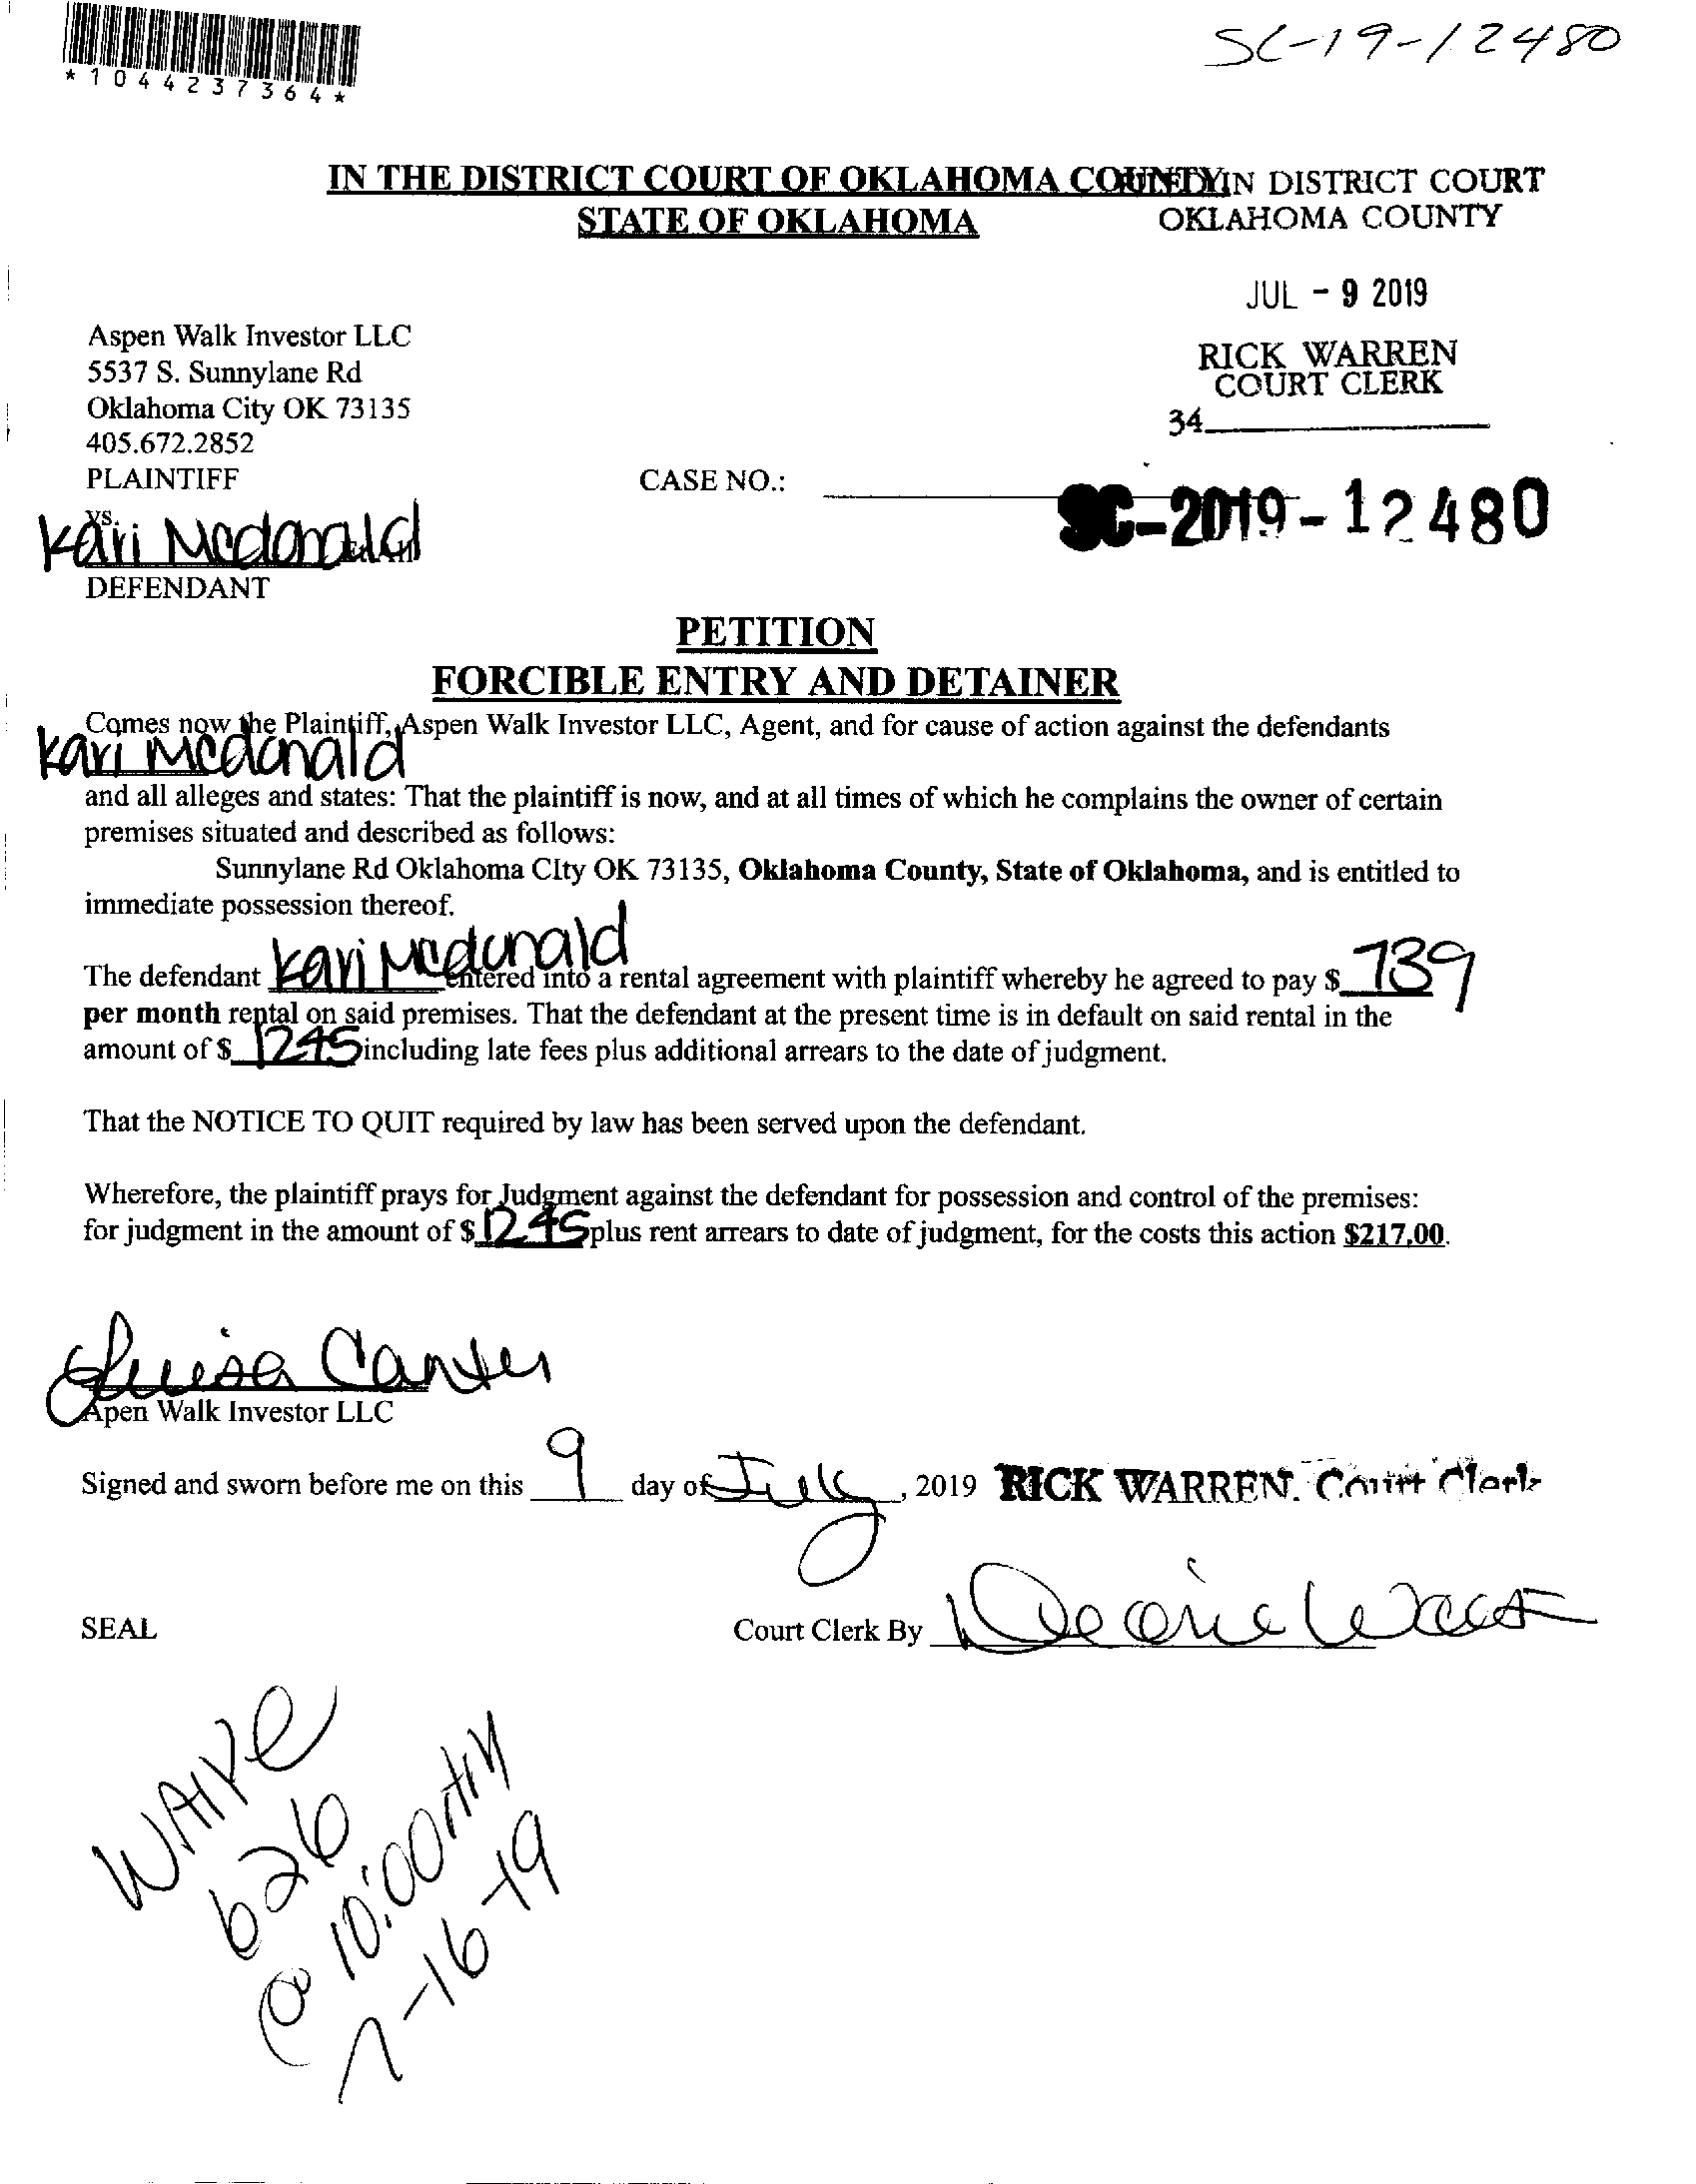 SC-19-12480
*1044237364*
IN THE DISTRICT COURT OF OKLAHOMA COUNTY
STATE OF OKLAHOMA
FILED IN DISTRICT COURT
OKLAHOMA COUNTY
JUL - 9 2019
RICK WARREN
COURT CLERK
34
Aspen Walk Investor LLC
5537 S. Sunnylane Rd
Oklahoma City OK 73135
405.672.2852
PLAINTIFF
CASE NO.:
SC-2019-12480
vs.
Kari Mcdonald
DEFENDANT
PETITION
FORCIBLE ENTRY AND DETAINER
Comes now the Plaintiff, Aspen Walk Investor LLC, Agent, and for cause of action against the defendants
Kari Mcdonald
and all alleges and states: That the plaintiff is now, and at all times of which he complains the owner of certain
premises situated and described as follows:
Sunnylane Rd Oklahoma CIty OK 73135, Oklahoma County, State of Oklahoma, and is entitled to
immediate possession thereof.
The defendant Kari Mcdonald entered into a rental agreement with plaintiff whereby he agreed to pay $ 739
per month rental on said premises. That the defendant at the present time is in default on said rental in the
amount of $ 1245 including late fees plus additional arrears to the date of judgment.
That the NOTICE TO QUIT required by law has been served upon the defendant.
Wherefore, the plaintiff prays for Judgment against the defendant for possession and control of the premises:
for judgment in the amount of $ 1245 plus rent arrears to date of judgment, for the costs this action $217.00.
Apen Walk Investor LLC
Signed and sworn before me on this 9 day of July, 2019 RICK WARREN. Court Clerk
SEAL
Court Clerk By
WAIVE
626
@ 10:00AM
7-16-19